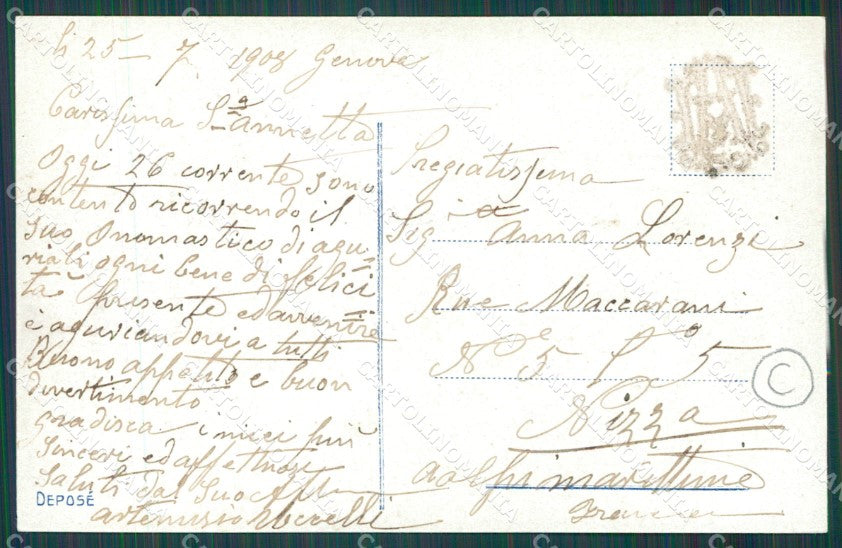 li 25 - 7 1908 Genova
Carissima S.a Annetta
Oggi 26 corrente sono
contento ricorrendo il
suo Onomastico di agu-
riali ogni bene di felici
tà presente ed avvenire
e aguriandovi a tutti
Buono appetito e buon
divertimento
gradisca i miei più
sinceri ed affettuosi
saluti dal Suo
artemisio
DEPOSÉ
Pregiatissima
Sig.a Anna Lorenzi
Rue Maccarani
No 5 5
Nizza
Alpi marittime
Francia
C
CARTOLINOMANIA